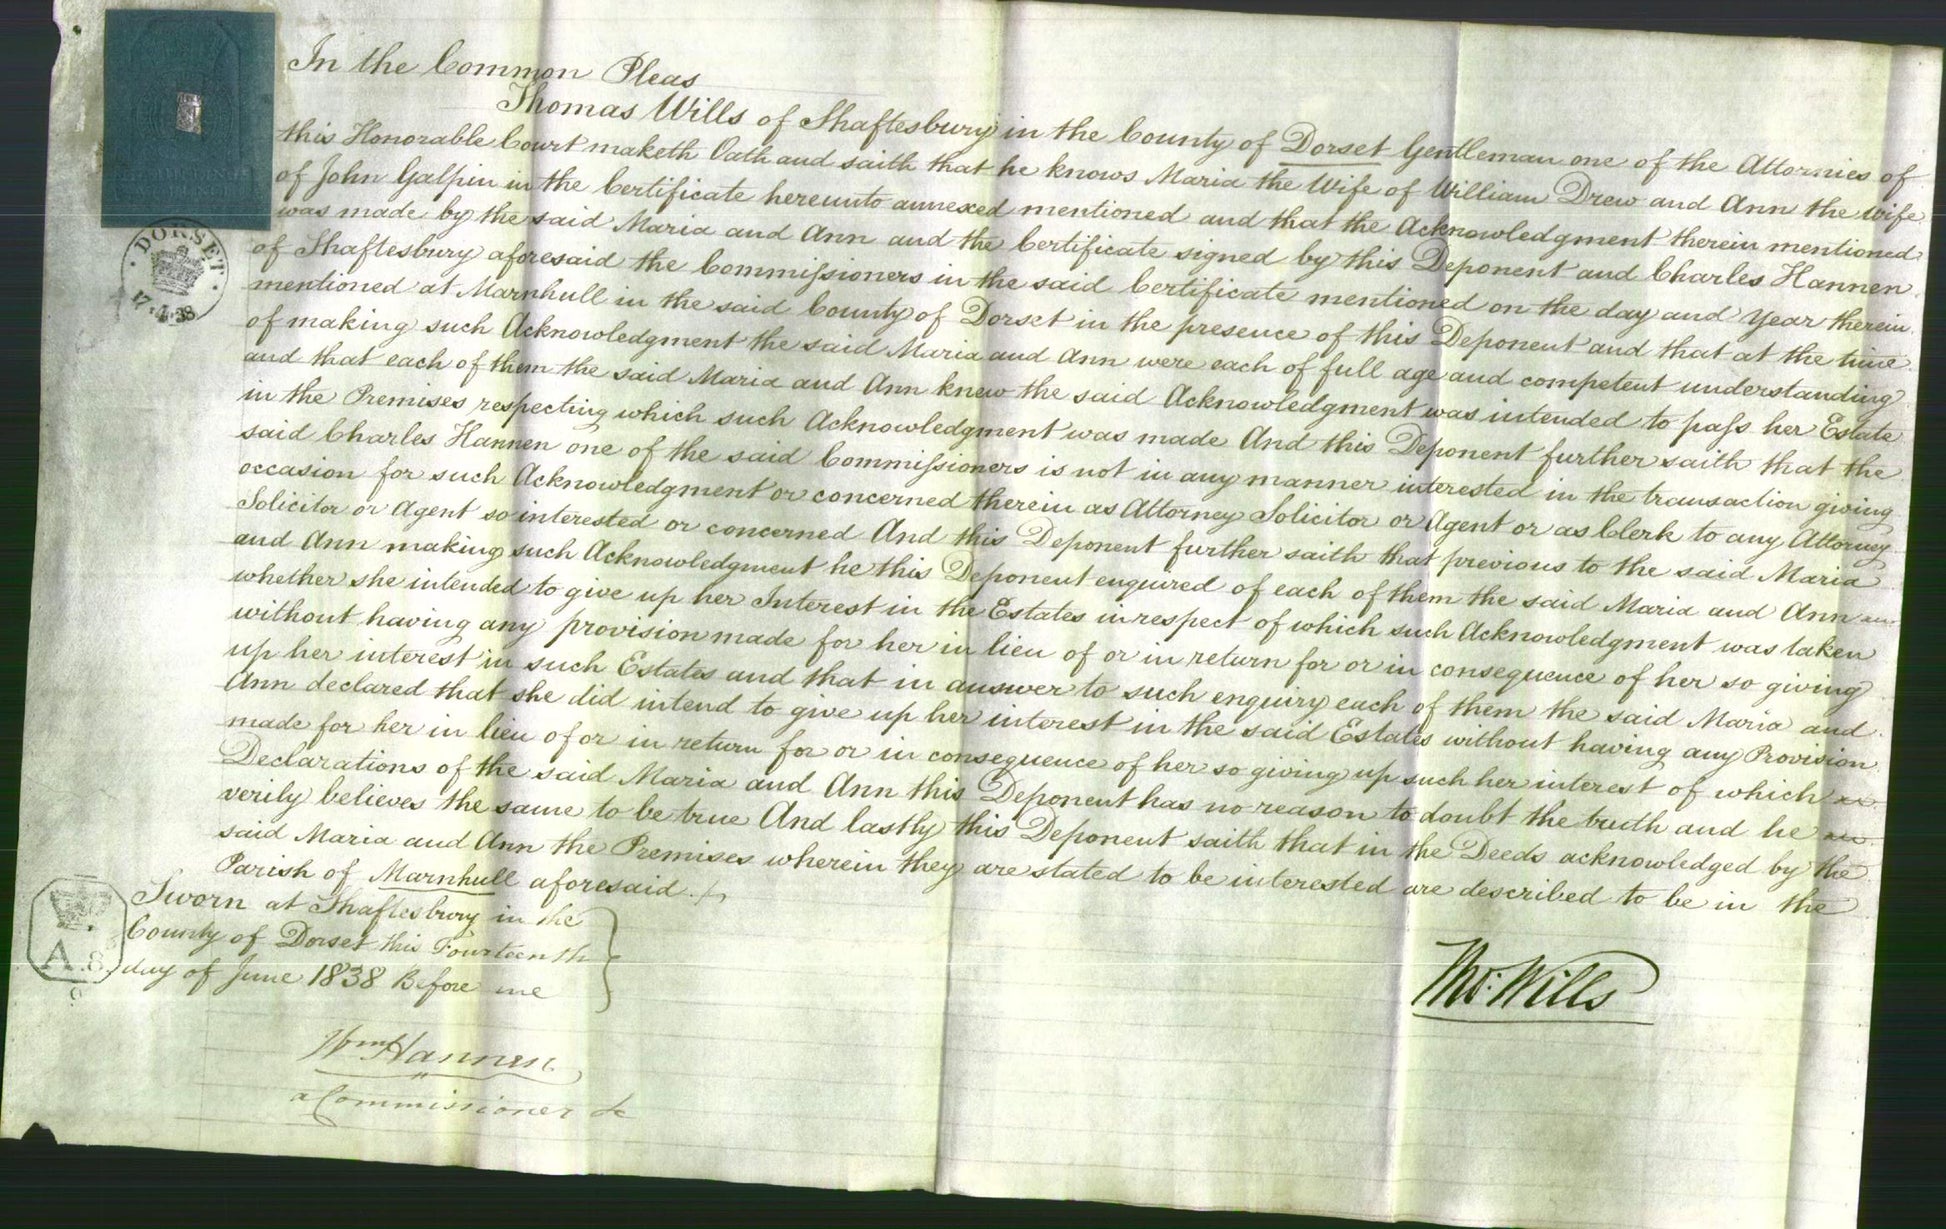 In the Common Pleas
Thomas Wills of Shaftesbury in the County of Dorset Gentleman one of the Attornies of
this Honorable Court maketh Oath and saith that he knows Maria the Wife of William Drew and Ann the Wife
of John Galpin in the Certificate hereunto annexed mentioned and that the Acknowledgment therein mentioned
was made by the said Maria and Ann and the Certificate signed by this Deponent and Charles Hannen
of Shaftesbury aforesaid the Commissioners in the said Certificate mentioned on the day and Year therein
mentioned at Marnhull in the said County of Dorset in the presence of this Deponent and that at the time
of making such Acknowledgment the said Maria and Ann were each of full age and competent understanding
and that each of them the said Maria and Ann knew the said Acknowledgment was intended to pass her Estate
in the Premises respecting which such Acknowledgment was made And this Deponent further saith that the
said Charles Hannen one of the said Commissioners is not in any manner interested in the transaction giving
occasion for such Acknowledgment or concerned therein as Attorney Solicitor or Agent or as Clerk to any Attorney
Solicitor or Agent so interested or concerned And this Deponent further saith that previous to the said Maria
and Ann making such Acknowledgment he this Deponent enquired of each of them the said Maria and Ann
whether she intended to give up her Interest in the Estates in respect of which such Acknowledgment was taken
without having any provision made for her in lieu of or in return for or in consequence of her so giving
up her interest in such Estates and that in answer to such enquiry each of them the said Maria and
Ann declared that she did intend to give up her interest in the said Estates without having any Provision
made for her in lieu of or in return for or in consequence of her so giving up such her interest of which
Declarations of the said Maria and Ann this Deponent has no reason to doubt the truth and he
verily believes the same to be true And lastly this Deponent saith that in the Deeds acknowledged by the
said Maria and Ann the Premises wherein they are stated to be interested are described to be in the
Parish of Marnhull aforesaid.
Sworn at Shaftesbury in the
County of Dorset this Fourteenth
day of June 1838 Before me
Wm Hannen
a Commissioner &c
Tho: Wills
DORSET
17.4.38
A.8.